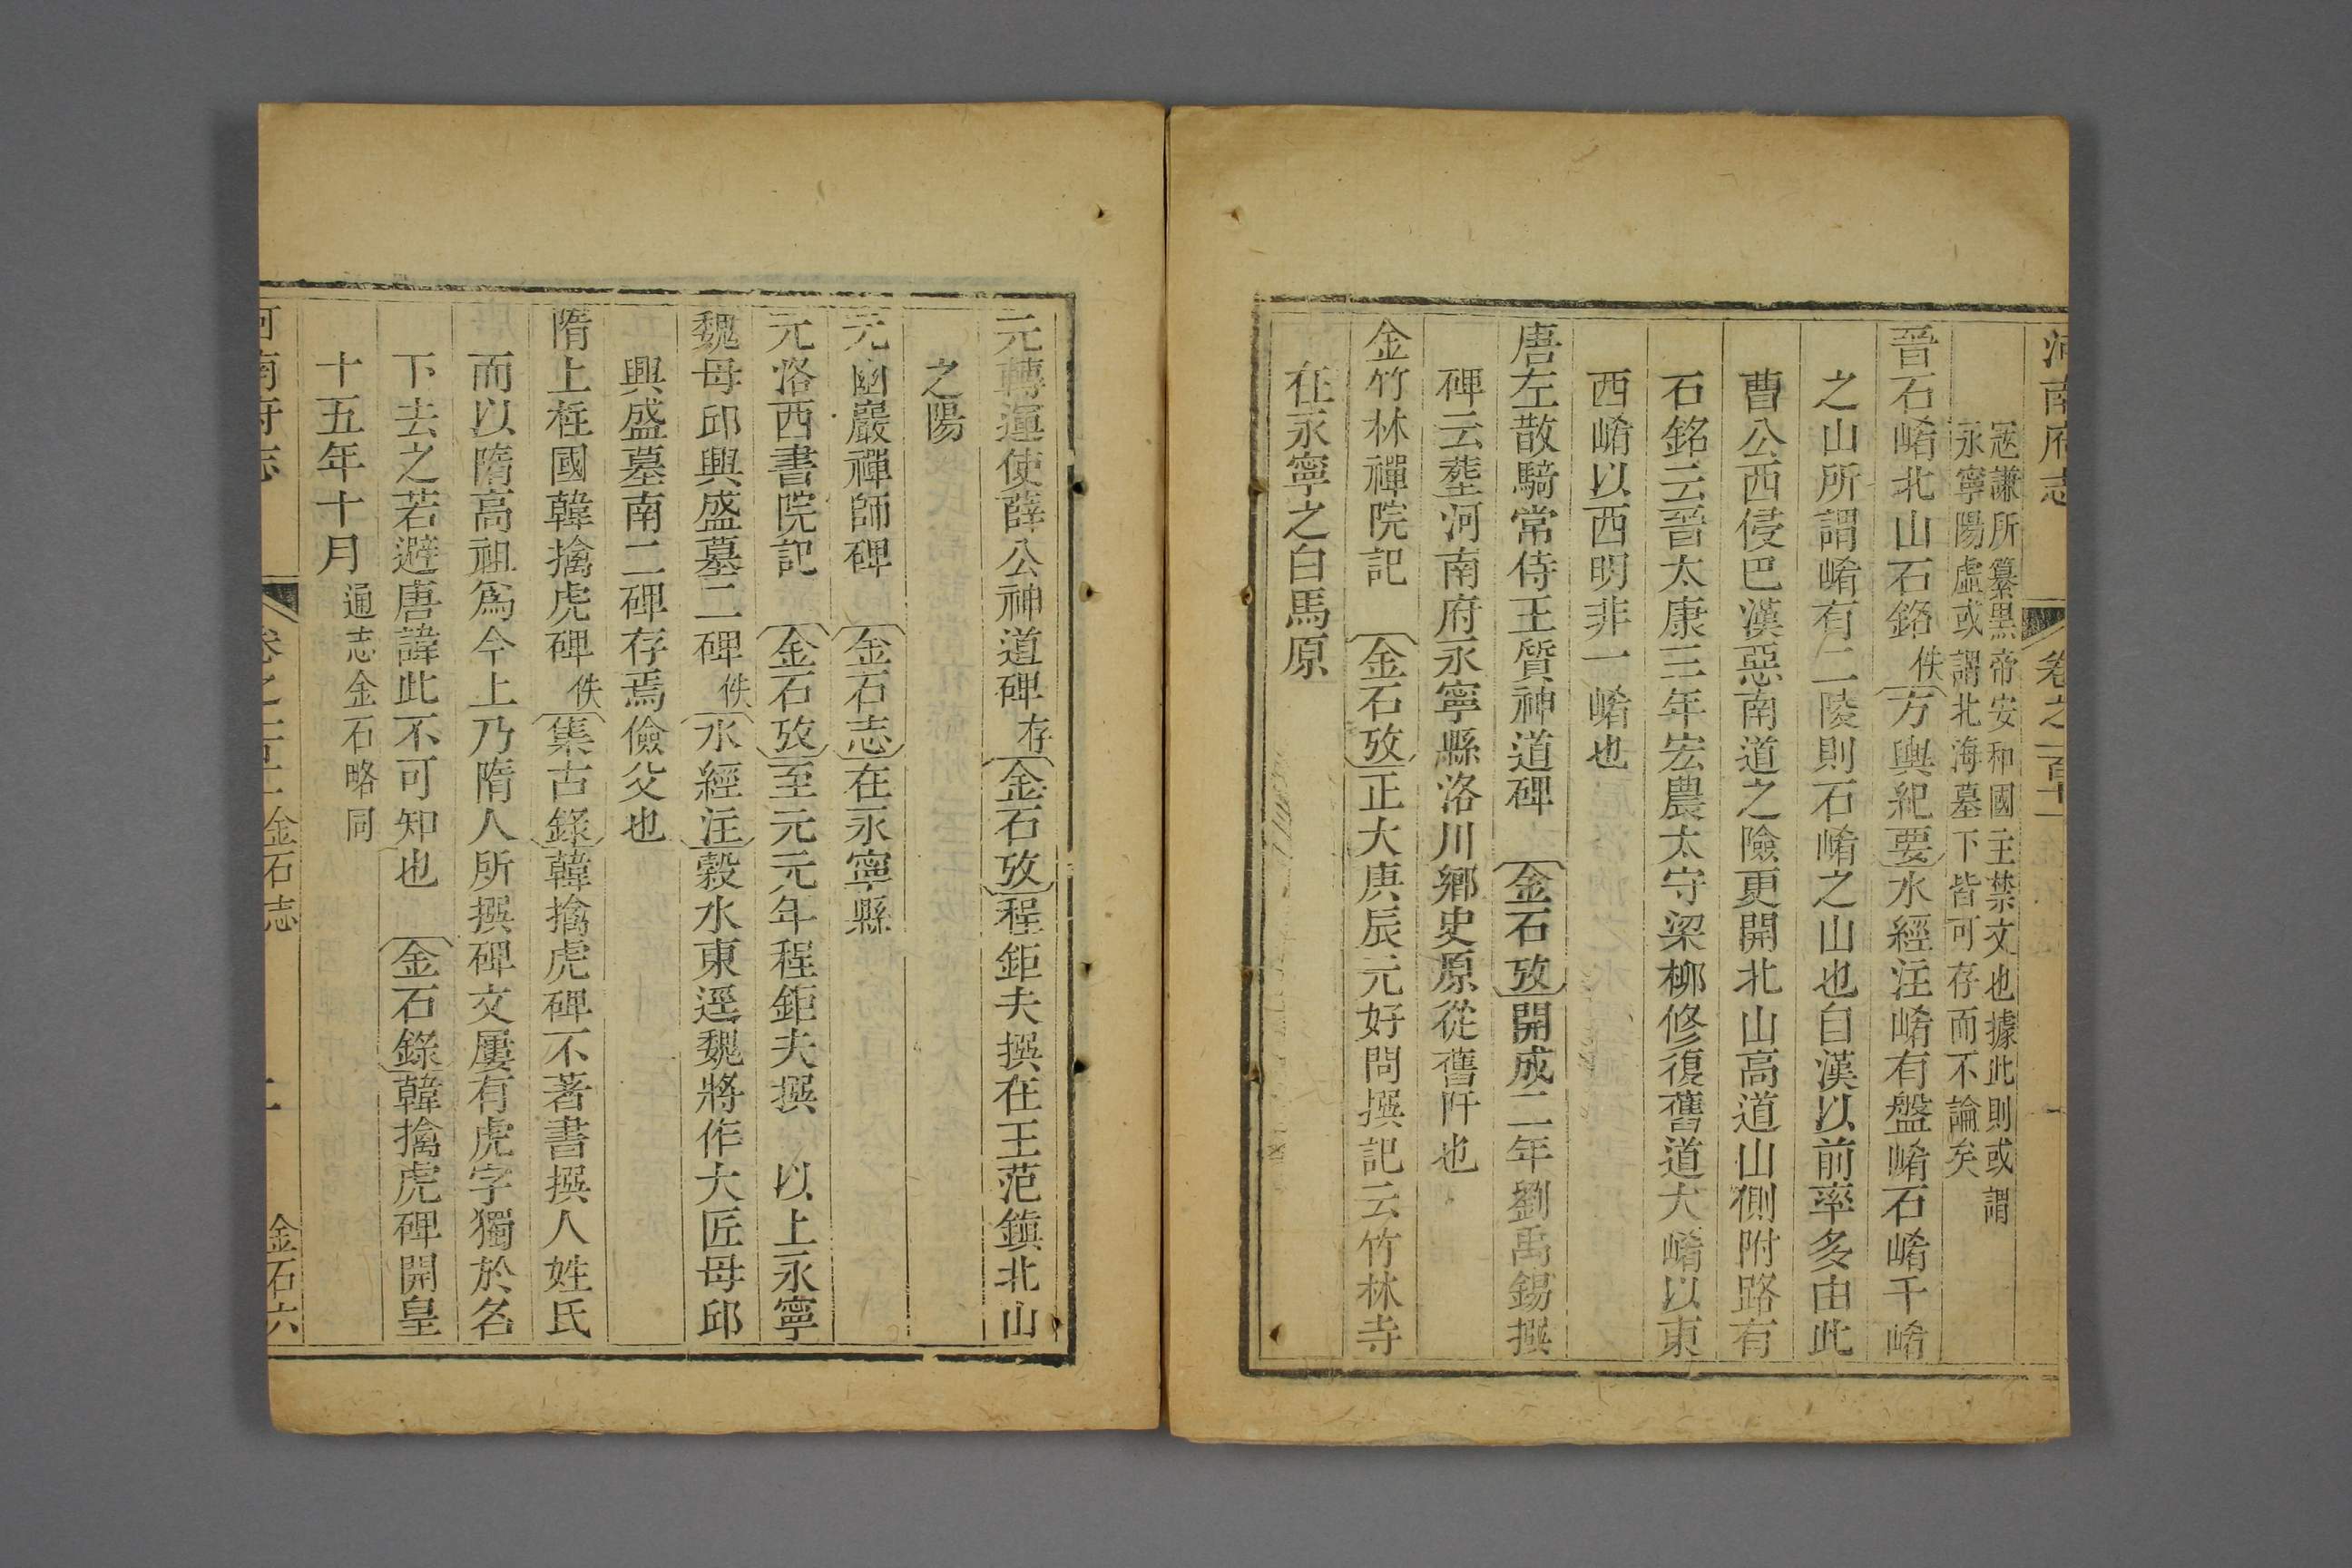 河南府志 卷之一百十一
寇謙所纂黑帝安和國主禁文也據此則或謂
永寧陽虛或謂北海墓下皆可存而不論矣
晉石崤北山石銘佚方輿紀要水經注崤有盤崤石崤千崤
之山所謂崤有二陵則石崤之山也自漢以前率多由此
曹公西侵巴漢惡南道之險更開北山高道山側附路有
石銘云晉太康三年宏農太守梁柳修復舊道大崤以東
西崤以西明非一崤也
唐左散騎常侍王質神道碑 金石攷開成二年劉禹錫撰
碑云塟河南府永寧縣洛川鄉史原從舊阡也
金竹林禪院記 金石攷正大庚辰元好問撰記云竹林寺
在永寧之白馬原
元轉運使薛公神道碑存金石攷程鉅夫撰在王范鎮北山
之陽
元幽巖禪師碑 金石志在永寧縣
元洛西書院記 金石攷至元元年程鉅夫撰 以上永寧
魏母邱興盛墓二碑佚水經注穀水東逕魏將作大匠母邱
興盛墓南二碑存焉儉父也
隋上柱國韓擒虎碑佚集古錄韓擒虎碑不著書撰人姓氏
而以隋高祖爲今上乃隋人所撰碑文屢有虎字獨於名
下去之若避唐諱此不可知也 金石錄韓擒虎碑開皇
十五年十月通志金石略同
河南府志 金石志 金石六